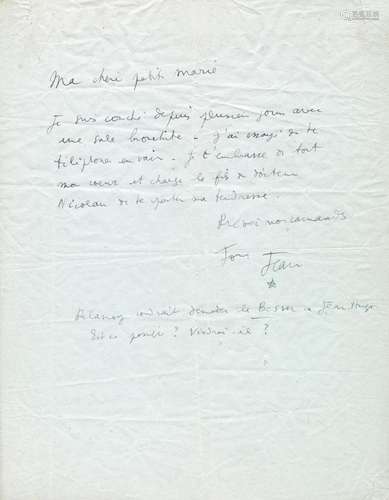 Ma chère petite Marie
Je suis couché depuis plusieurs jours avec
une sale bronchite - j'ai essayé de te
téléphoner en vain. Je t'embrasse de tout
mon coeur et charge le fils du docteur
Nicolau de te porter ma tendresse.
nos camarades
Ton Jean
voudrait demander le à Jean Hugo
Est-ce possible ? Viendrait-il ?